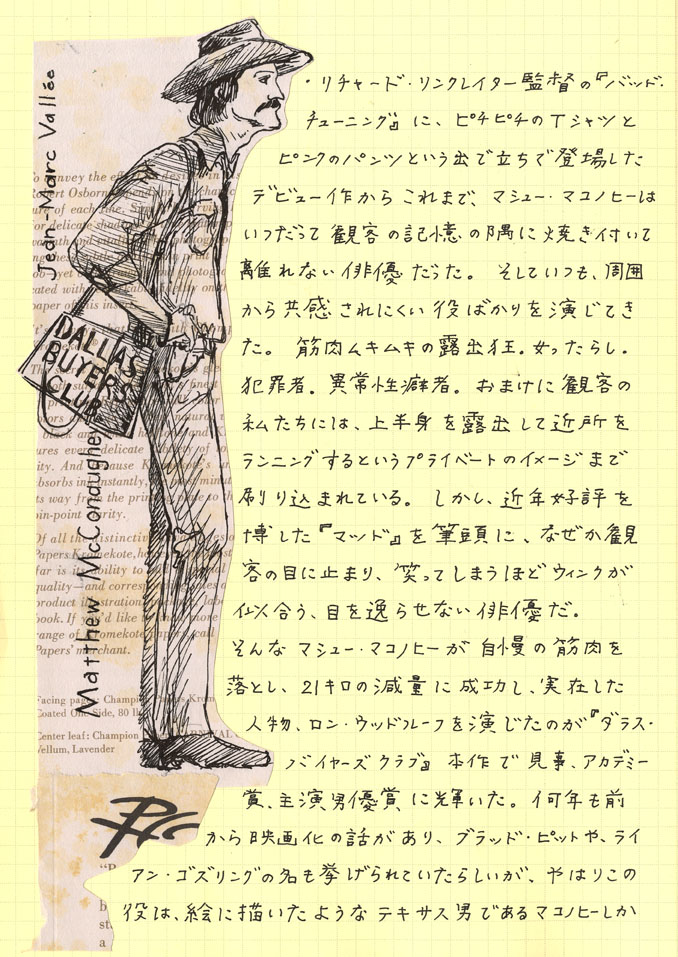 ・リチャード・リンクレイター監督の『バッド・
チューニング』に、ピチピチのTシャツと
ピンクのパンツという出で立ちで登場した
デビュー作からこれまで、マシュー・マコノヒーは
いつだって観客の記憶の隅に焼き付いて
離れない俳優だった。そしていつも、周囲
から共感されにくい役ばかりを演じてき
た。筋肉ムキムキの露出狂。女ったらし。
犯罪者。異常性癖者。おまけに観客の
私たちには、上半身を露出して近所を
ランニングするというプライベートのイメージまで
刷り込まれている。しかし、近年好評を
博した『マッド』を筆頭に、なぜか観
客の目に止まり、笑ってしまうほどウィンクが
似合う、目を逸らせない俳優だ。
そんなマシュー・マコノヒーが自慢の筋肉を
落とし、21キロの減量に成功し、実在した
人物、ロン・ウッドルーフを演じたのが『ダラス・
バイヤーズクラブ』本作で見事、アカデミー
賞、主演男優賞に輝いた。何年も前
から映画化の話があり、ブラッド・ピットや、ライ
アン・ゴズリングの名も挙げられていたらしいが、やはりこの
役は、絵に描いたようなテキサス男であるマコノヒーしか
Jean-Marc Vallée
Matthew McConaughey
DALLAS
BUYERS
CLUB
To convey the
Robert Osborn
of each line.
or delicate
paper of this
Of all the distinctive
Papers Kromekote,
far is its ability to
quality—and
product illustration,
book. If you'd like
range of Kromekote papers, call
Papers' merchant.
Facing page: Champion Papers Krom
Coated One Side, 80 lb
Center leaf: Champion
Vellum, Lavender